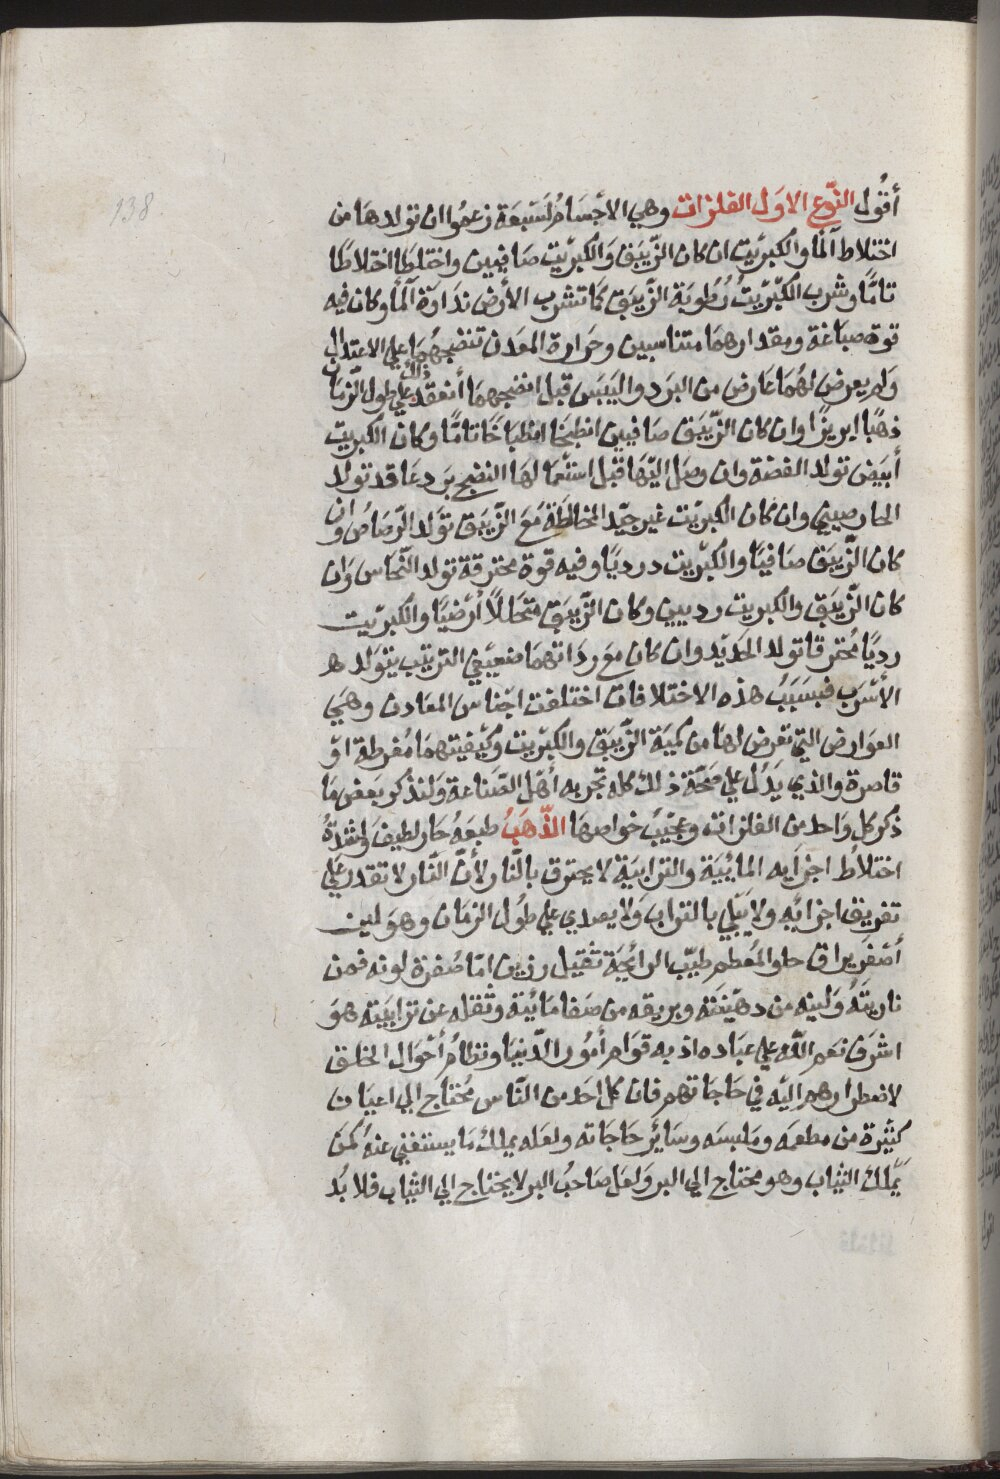 138
أقول النّوع الاوَل الفلزات وهي الاجْسَام السّبعَة زعمُوا ان تولدهَا من
اختلاط المآ والكبرّيت ان كان الزّيبَق وَالكبرّيت صَافيين واختلطَا اختلاطًا
تامًّا وشرب الكبّريتُ رُطوبَة الزّيبَق كمَا تشرب الأرض ندَاوَة المآ وكان فيه
قوة صبّاغة ومقدارهمَا متناسبين وحَرارة المعَدن تنضجُهمَا علي الاعتدال
وَلم يعرض لهُمَا عَارض من البرَد واليَبَس قبل انضجهمَا أنعقد ذلك علي طول الزّمَان
ذهبًا ابريزًا وان كان الزّيبَق صَافيين انطبخَا انطبَاخًا تامًّا وكان الكبريت
أبيَض تولد الفضة وان وصَل اليّهَا قبل استْعمَالهَا النضج برَد عَاقد تولد
الخارصيني وان كان الكبرّيت غير جيّد المخالطَة مَعَ الزّيبَق تولد الرّصَاص وان
كان الزّيبَق صَافيًا والكبّريت درديًا وفيه قوة محترقة تولد النّحاس وَان
كان الزّيبَق والكبريت رديين وكان الزّيبَق متخَلخلًا أرْضيًا والكبرّيت
رديًا مُحترقا تولد الحَديد وان كان معَ ردَاتهمَا ضعيّفي الترتيب يتوَلد
الأسْرَب فبسَبَبُ هذه الاختلافات اختلفت اجْناس المعَادن وهيَ
العوَارض التي تعرض لهَا من كميَة الزّيبَق والكبّريت وكيْفيتهمَا مُفرطة اوّ
قاصرة والذي يَدَل علي صَحّة ذلك كله تجربه أهْل الصّناعة وَلنذكر بَعض مَا
ذُكر كل وَاحد من الفلزات وعجيّبُ خواصهَا الذّهَبُ طبعَهُ حَار لطيف وَلشدّةُ
اختلاط اجزآيه المايْيَة والترابيَة لا يحترق بالنّار لأنّ النّار لا تقدر عَلي
تفريق اجزايَه ولا يَبّلي بالتراب وَلا يصدي علي طوُل الزمَان وهوَ لين
أصْفرَ براق حلو المُطعم طيّب الرائحيَة ثقيل رزين امّا صُفرة لونه فمن
ناريتَهُ وَلينه من دهيَنتَة وبريقه من صَفا مَائيَة وثقله عن ترابيَته هوَ
اشرَف نعَم اللّه علي عبَاده اذ به قوَام أمُور الدّنيَا ونظامُ أحْوَال الخلق
لاضطرارهم اليّه في حَاجَاتهم فان كل احَد من النّاس مُحْتاج الي اعيَان
كثيَرة من مطعمَه ومَلبسَه وسَائر حَاجَاته ولعَله يملك مَا يستغني عنهُ كمَن
يَملك الثيَاب وهو محتاج الي البر وَلعَل صَاحبُ البر لا يحتاج الي الثيَاب فلا بُد